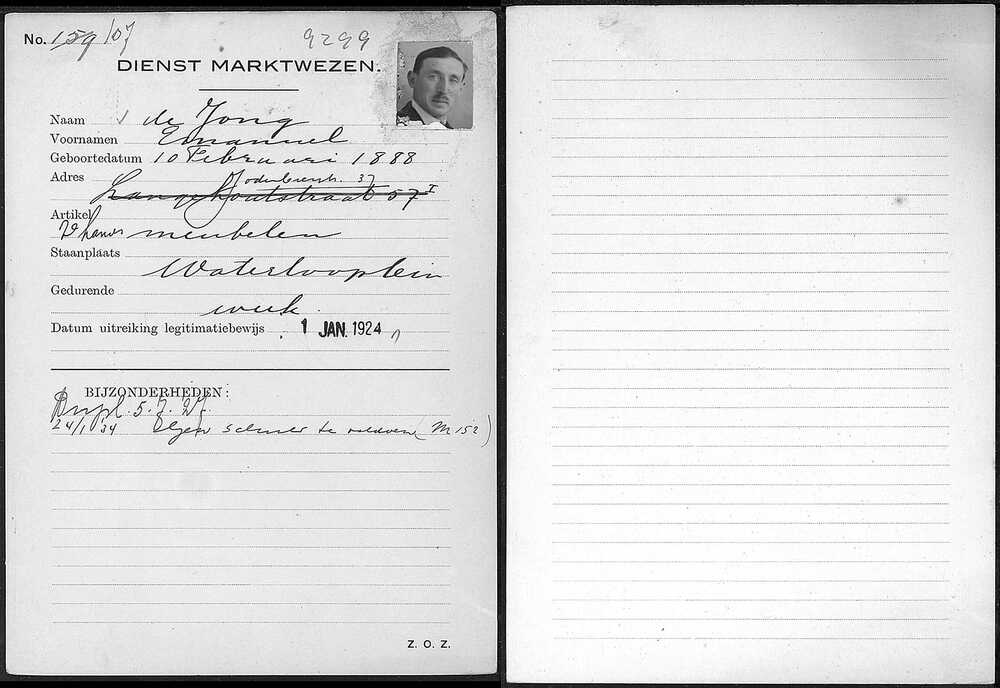 No. 159/07
9299
DIENST MARKTWEZEN.
Naam de Jong
Voornamen Emanuel
Geboortedatum 10 Februari 1888
Adres Jodenbreestr. 37
Lange Houtstraat 57 I
Artikel
meubelen
Staanplaats
Waterlooplein
Gedurende
week
Datum uitreiking legitimatiebewijs 1 JAN. 1924
BIJZONDERHEDEN:
Dupl. 5.7.27.
24/1 '34 te (M 152)
Z. O. Z.